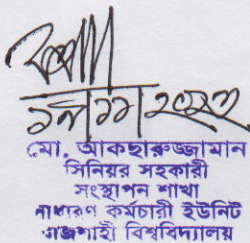 মো. আকছারুজ্জামান
সিনিয়র সহকারী
সংস্থাপন শাখা
সাধারণ কর্মচারী ইউনিট
রাজশাহী বিশ্ববিদ্যালয়